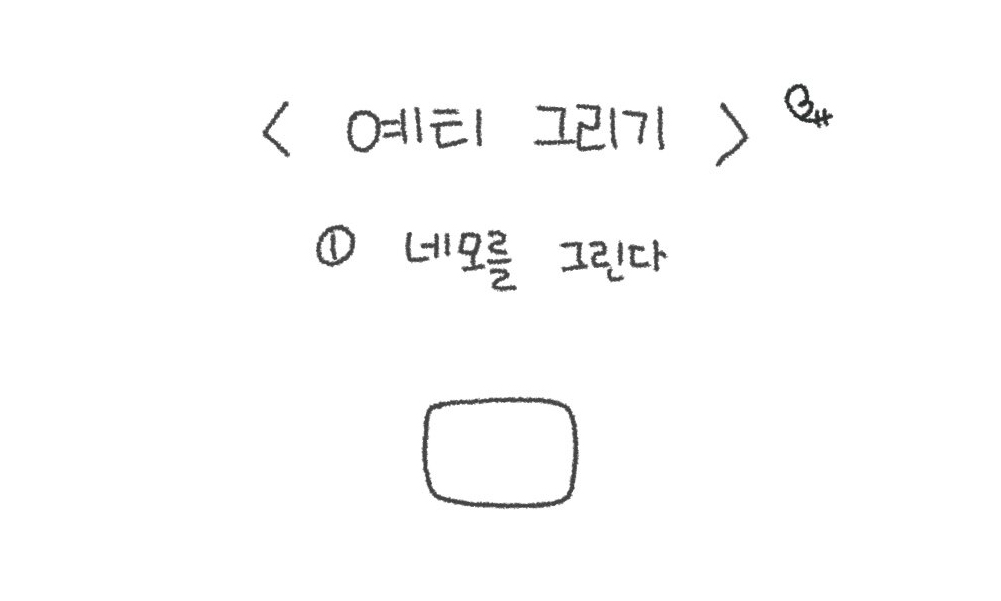 < 예티 그리기 >
① 네모를 그린다